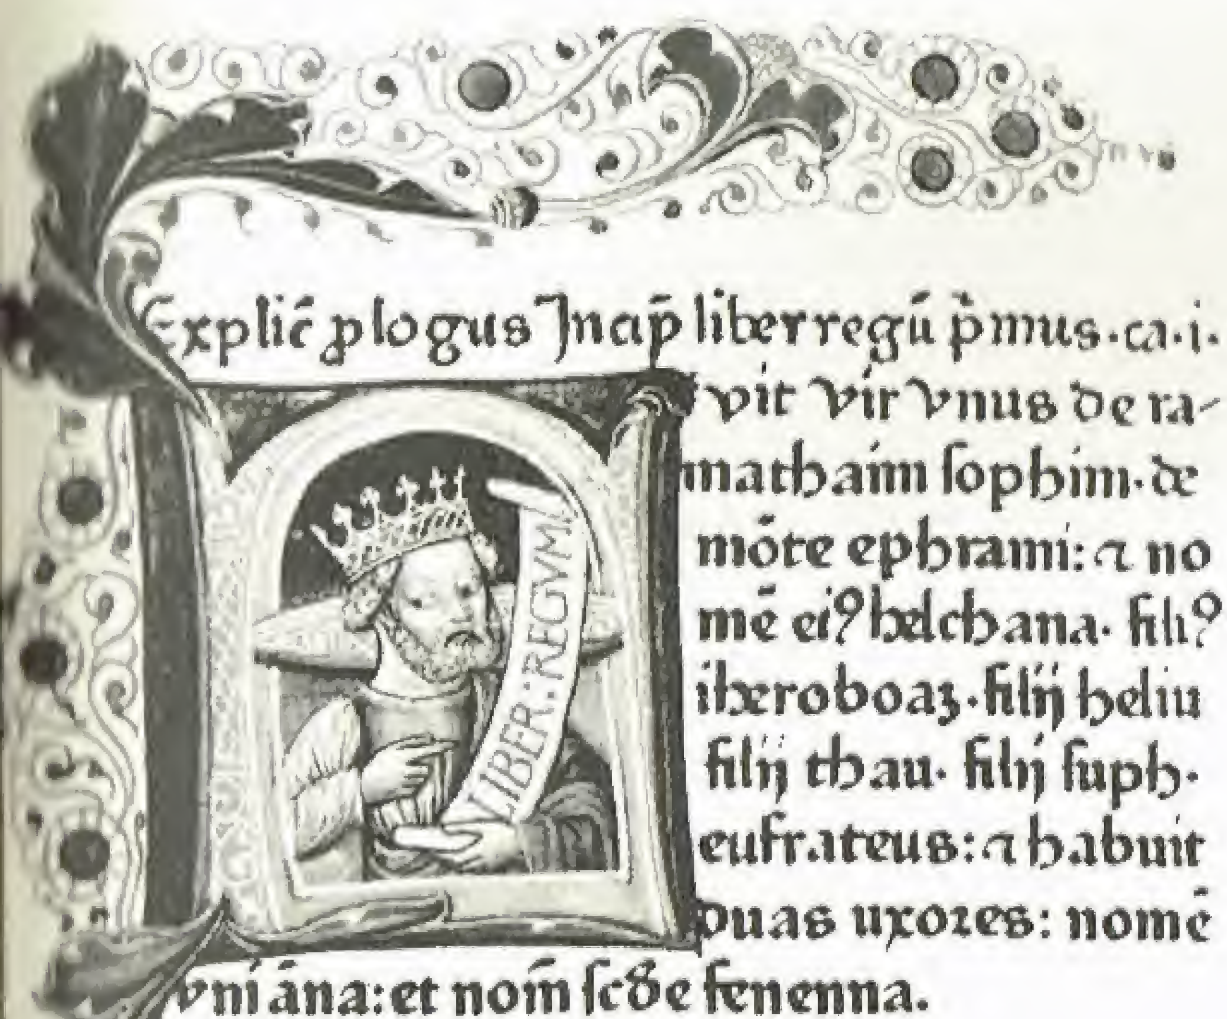 Explic̄ ꝓlogus Incip̄ liber regū p̄mus·ca·i·
vit vir vnus de ra-
mathaim ſophim·de
mōte ephrami: ⁊ no
mē eiꝰ helchana· filiꝰ
iheroboaʒ·filij heliu
filij thau· filij ſuph·
eufrateus: ⁊ habuit
duas uxores: nomē
vni āna: et nom̄ ſcd̄e fenenna.
LIBER:REGVM